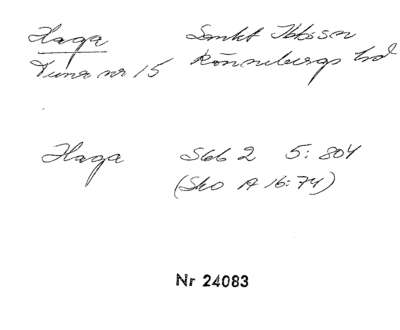 Haga Sankt Ibbs sn
Tuna nr 15 Rönnebergs hd
Haga S66 2 5:804
(Sko A 16:74)
Nr 24083